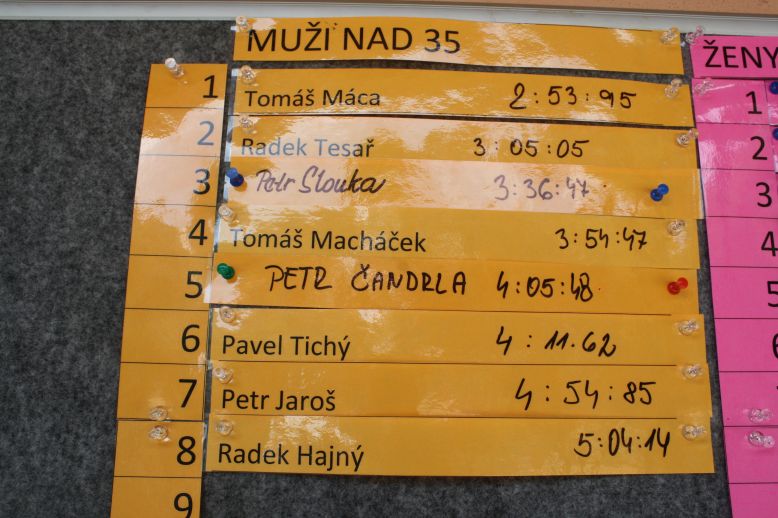 MUŽI NAD 35
ŽENY
1 Tomáš Máca 2:53:95
1
2 Radek Tesař 3:05:05
2
3 Petr Slouka 3:36:47
3
4 Tomáš Macháček 3:54:47
4
5 PETR ČANDRLA 4:05:48
5
6 Pavel Tichý 4:11.62
6
7 Petr Jaroš 4:54:85
8 Radek Hajný 5:04:14
9